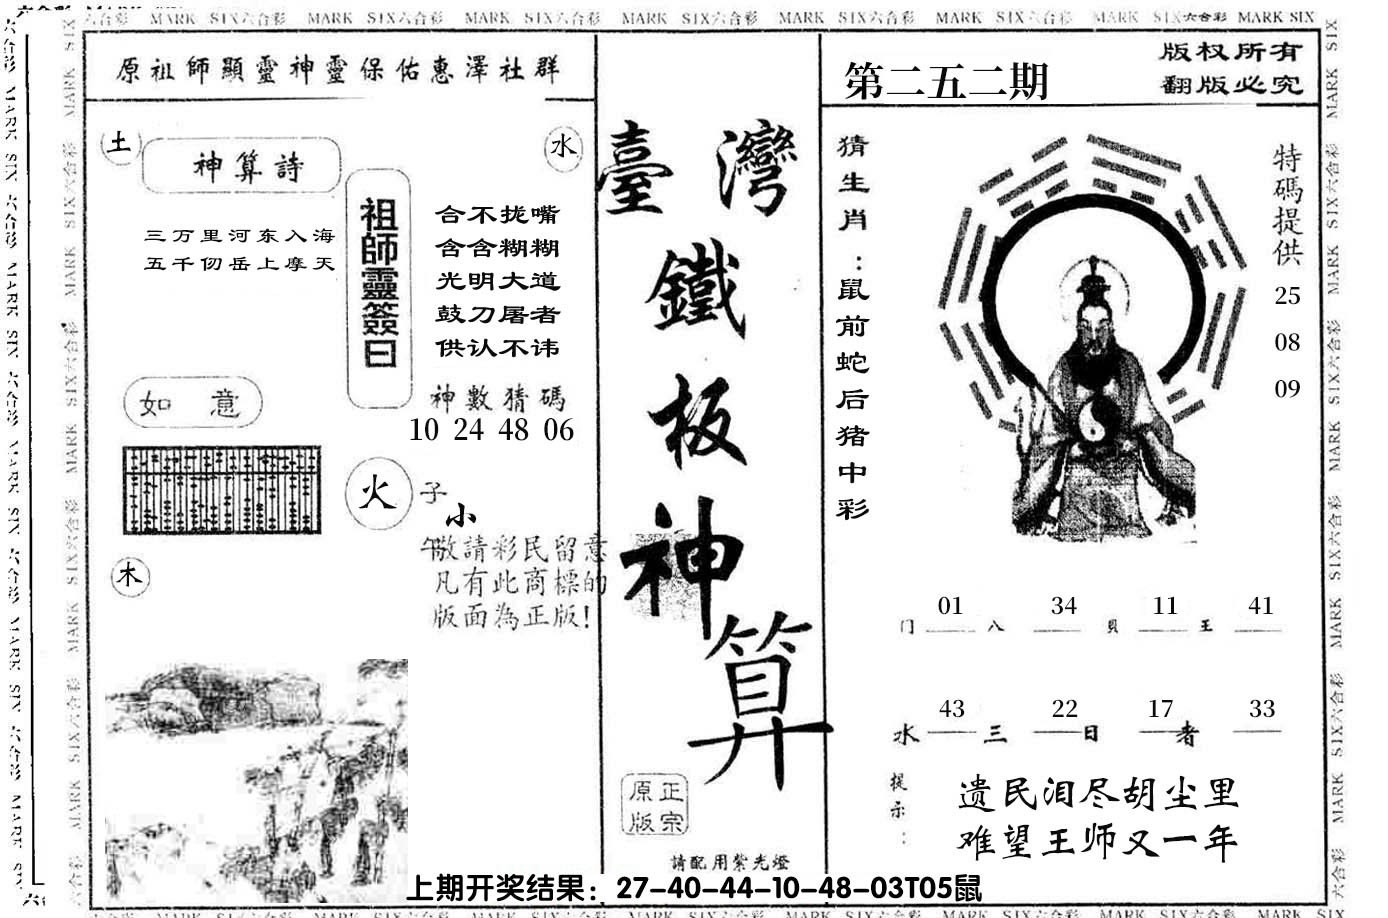 MARK SIX六合彩 MARK SIX六合彩 MARK SIX六合彩 MARK SIX六合彩 MARK SIX六合彩 MARK SIX六合彩 MARK SIX六合彩 MARK SIX
原祖師顯靈神靈保佑惠澤社群
土
神算詩
水
三万里河东入海
五千仞岳上摩天
祖師靈簽曰
合不拢嘴
含含糊糊
光明大道
鼓刀屠者
供认不讳
神數猜碼
10 24 48 06
如 意
火
子
小
午
敬請彩民留意
凡有此商標的
版面為正版!
木
臺灣
鐵
板
神
算
原正
版宗
請配用紫光燈
第二五二期
版权所有
翻版必究
猜生肖:鼠前蛇后猪中彩
特碼提供
25
08
09
01 34 11 41
门 八 貝 王
43 22 17 33
水 三 日 者
提示:
遗民泪尽胡尘里
难望王师又一年
上期开奖结果：27-40-44-10-48-03T05鼠